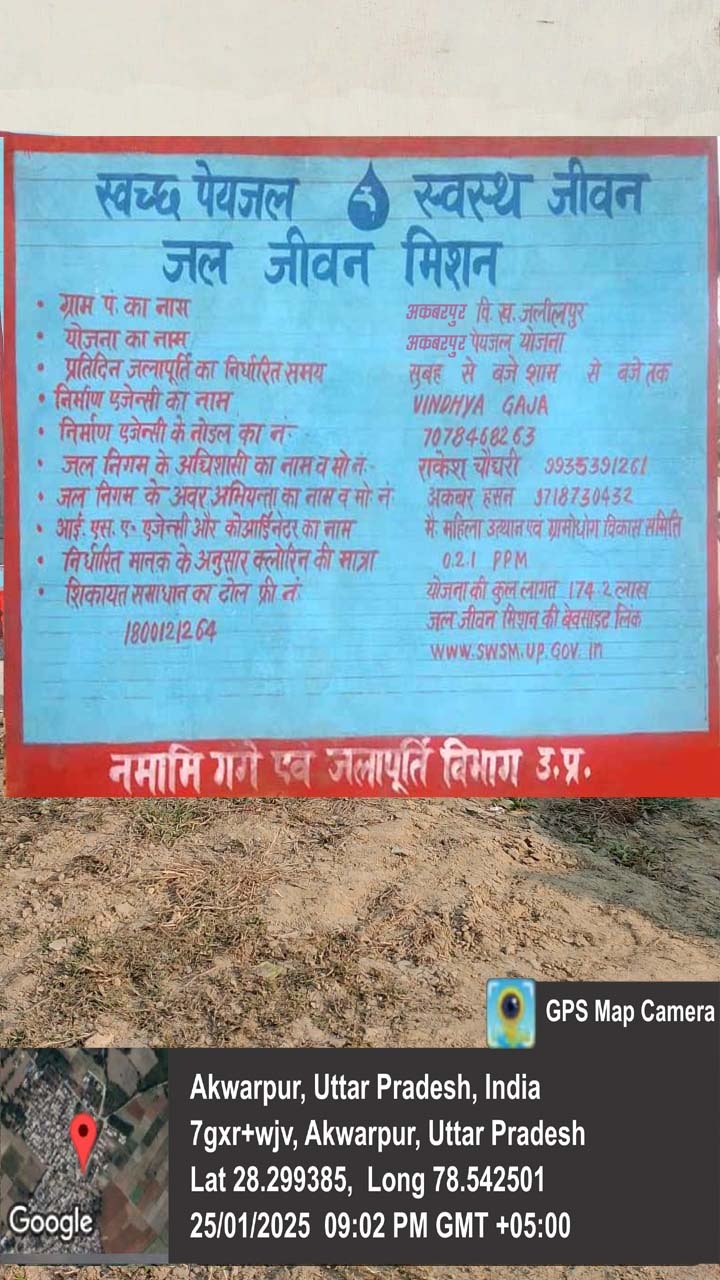 स्वच्छ पेयजल स्वस्थ जीवन
जल जीवन मिशन
• ग्राम पं. का नास अकबरपुर वि. ख. जलीलपुर
• योजना का नाम अकबरपुर पेयजल योजना
• प्रतिदिन जलापूर्ति का निर्धारित समय सुबह से बजे शाम से बजे तक
• निर्माण एजेन्सी का नाम VINDHYA GAJA
• निर्माण एजेन्सी के नोडल का नं. 7078468263
• जल निगम के अधिशासी का नाम व मो नं. राकेश चौधरी 9935391261
• जल निगम के अवर अभियन्ता का नाम व मो. नं अकबर हसन 9718730432
• आई. एस. ए- एजेन्सी और कोआर्डिनेटर का नाम मै. महिला उत्थान एवं ग्रामोधोग विकास समिति
• निर्धारित मानक के अनुसार क्लोरिन की मात्रा 0.2.1 PPM
• शिकायत समाधान का टोल फ्री नं. योजना की कुल लागत 174.2 लाख
1800121264 जल जीवन मिशन की बेवसाइट लिंक
www.SWSM.UP.GOV.in
नमामि गंगे एवं जलापूर्ति विभाग उ.प्र.
GPS Map Camera
Akwarpur, Uttar Pradesh, India
7gxr+wjv, Akwarpur, Uttar Pradesh
Lat 28.299385, Long 78.542501
25/01/2025 09:02 PM GMT +05:00
Google